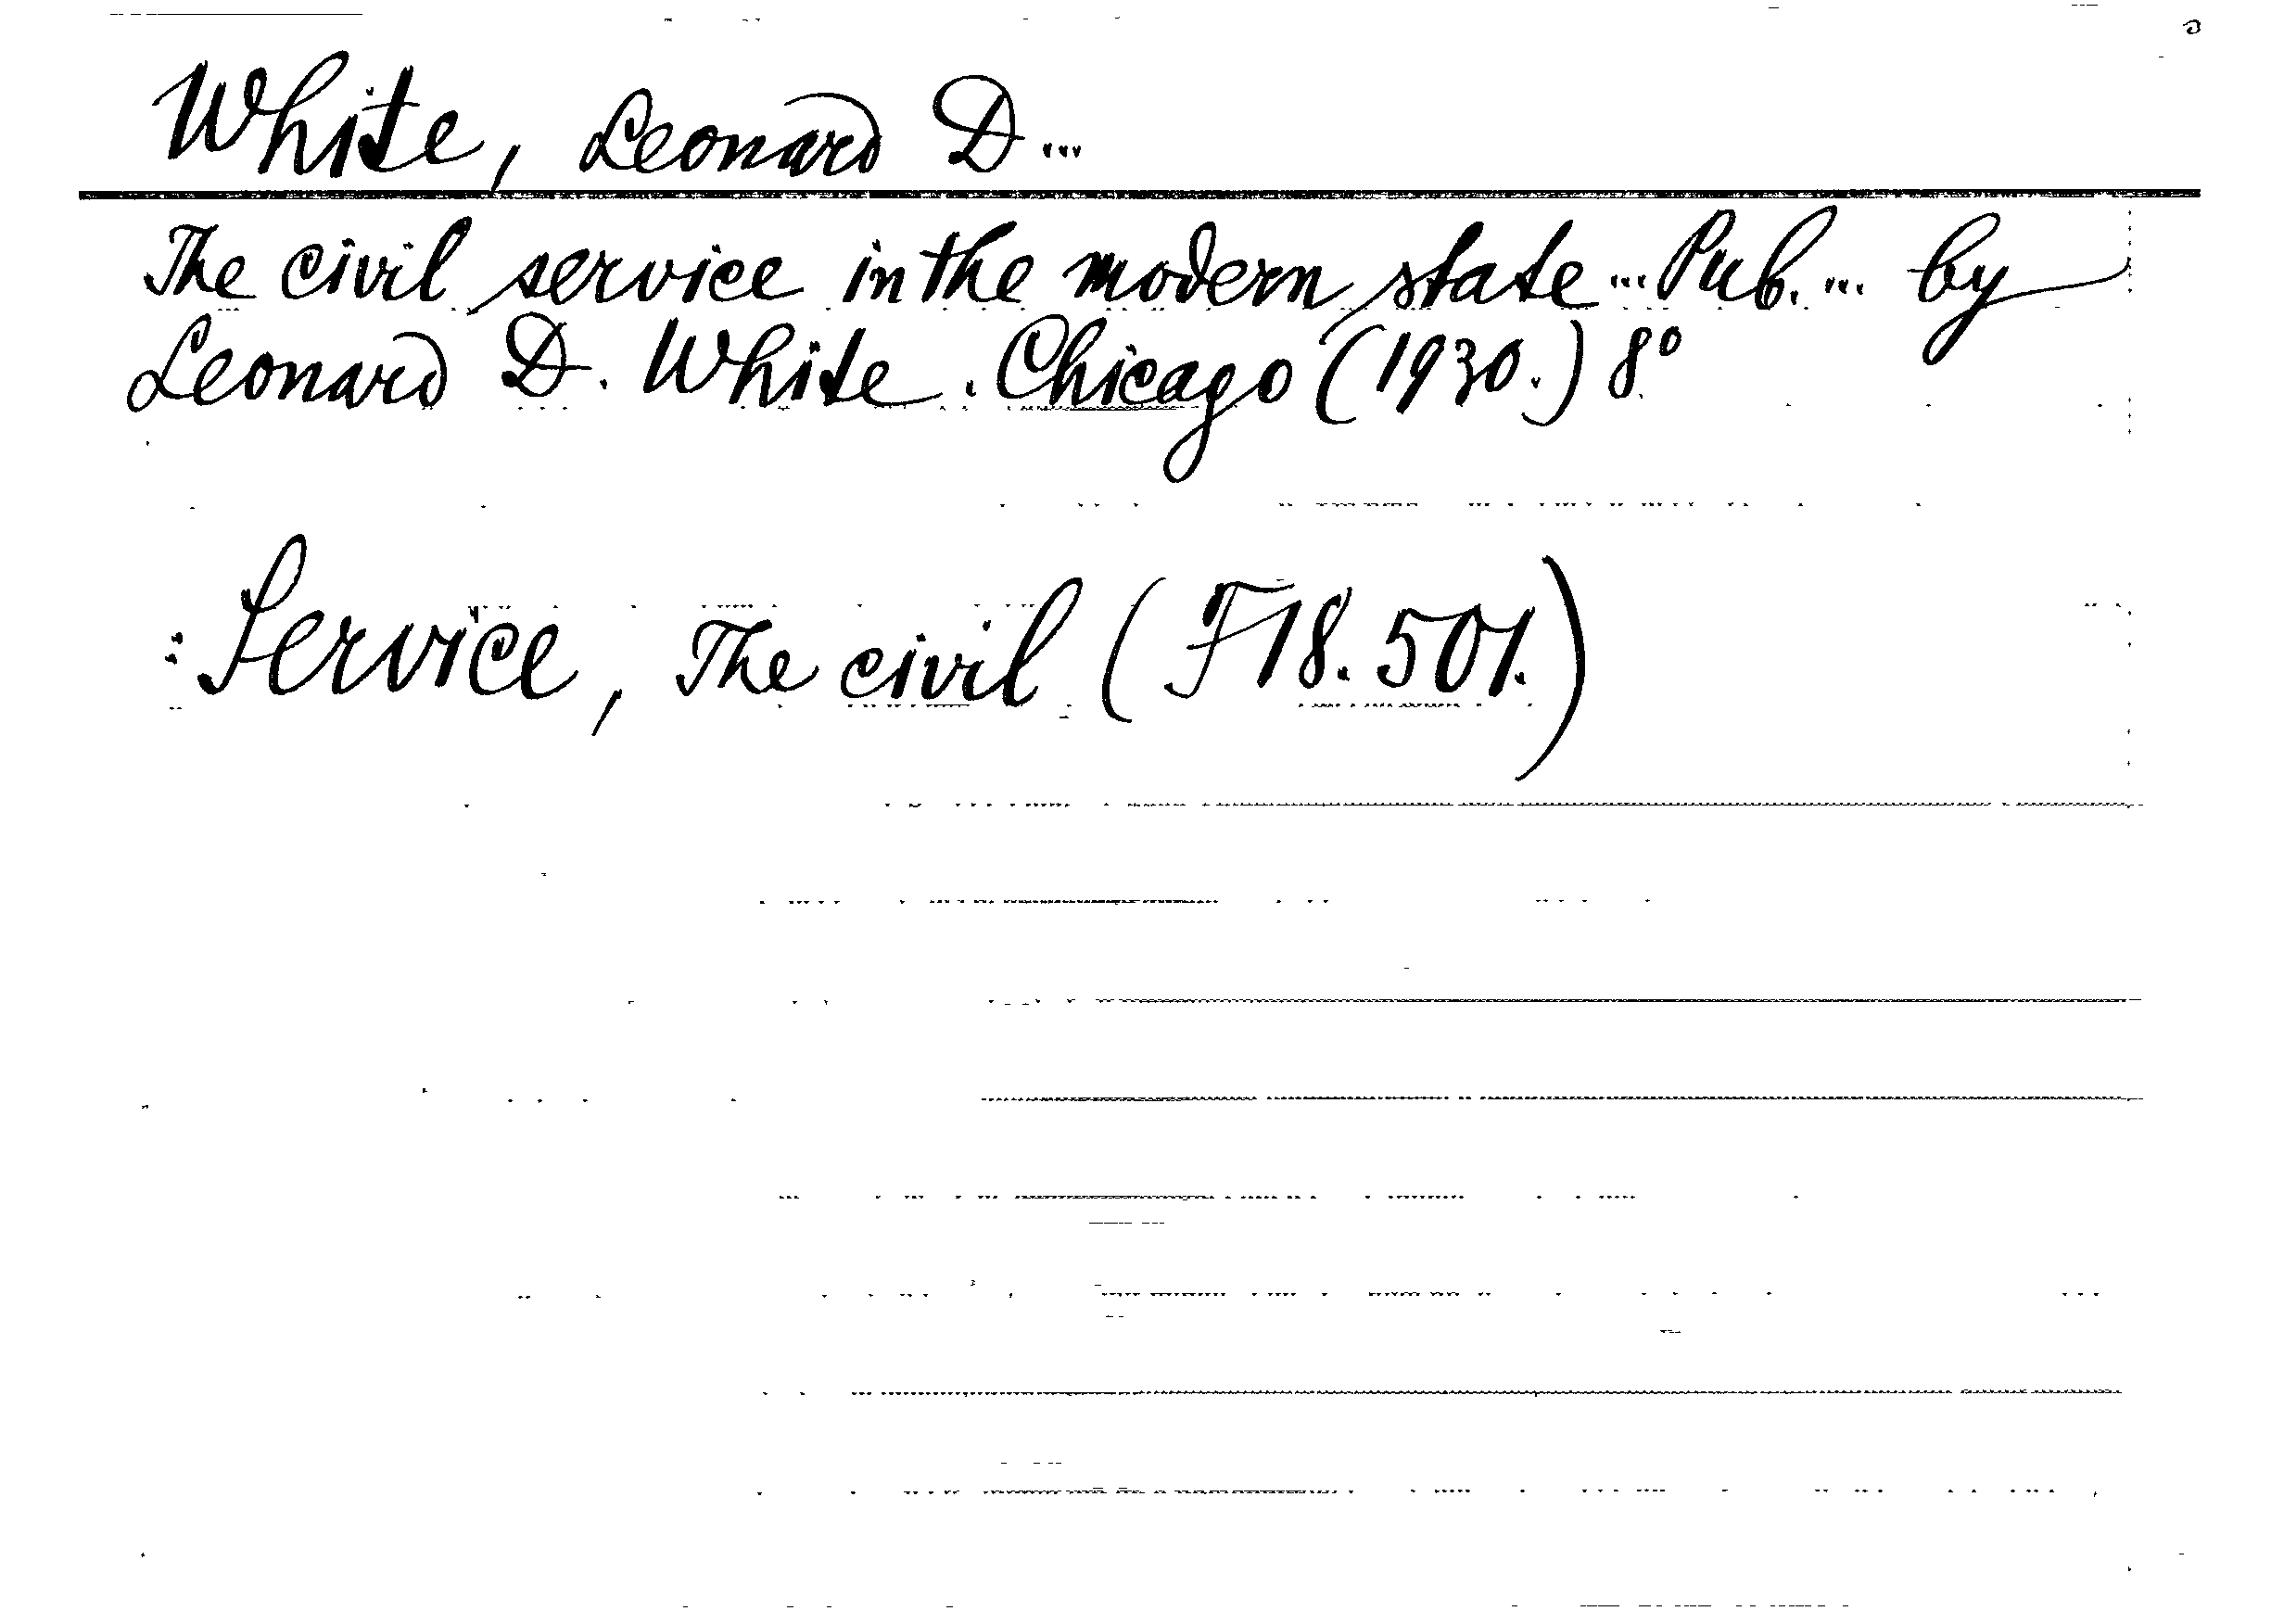 White, Leonard D...
The civil service in the modern state ... Pub. ... by
Leonard D. White. Chicago (1930.) 8°
: Service, The civil (F18.501.)